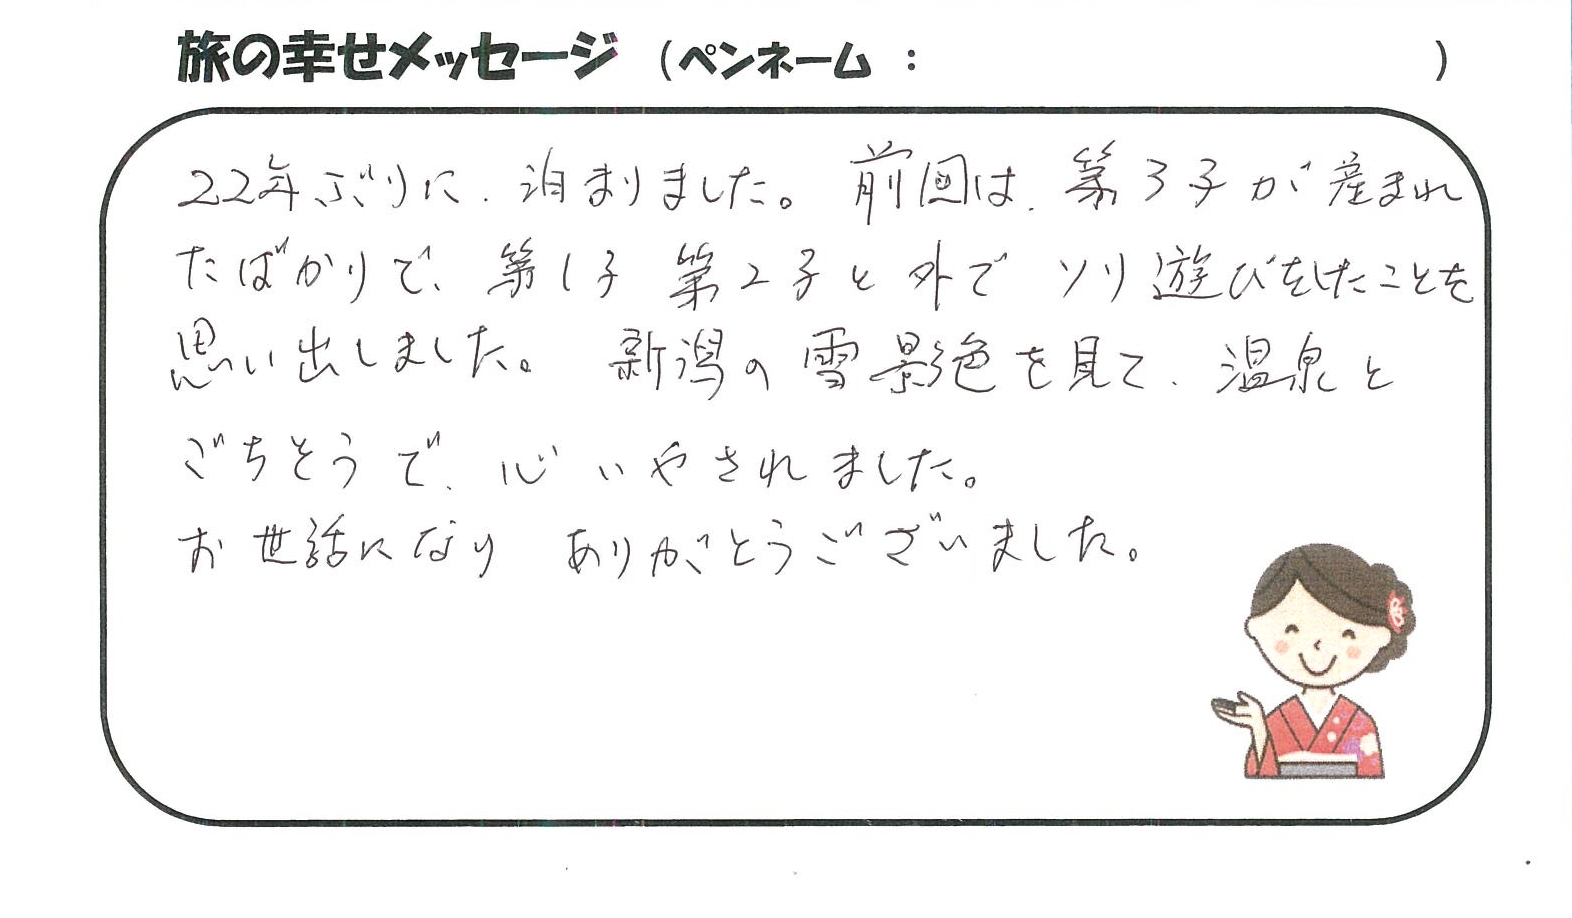 旅の幸せメッセージ (ペンネーム : )
22年ぶりに、泊まりました。 前回は、第3子が産まれ
たばかりで、第1子 第2子と外で ソリ遊びをしたことを
思い出しました。 新潟の雪景色を見て、温泉と
ごちそうで、心いやされました。
お世話になり ありがとうございました。